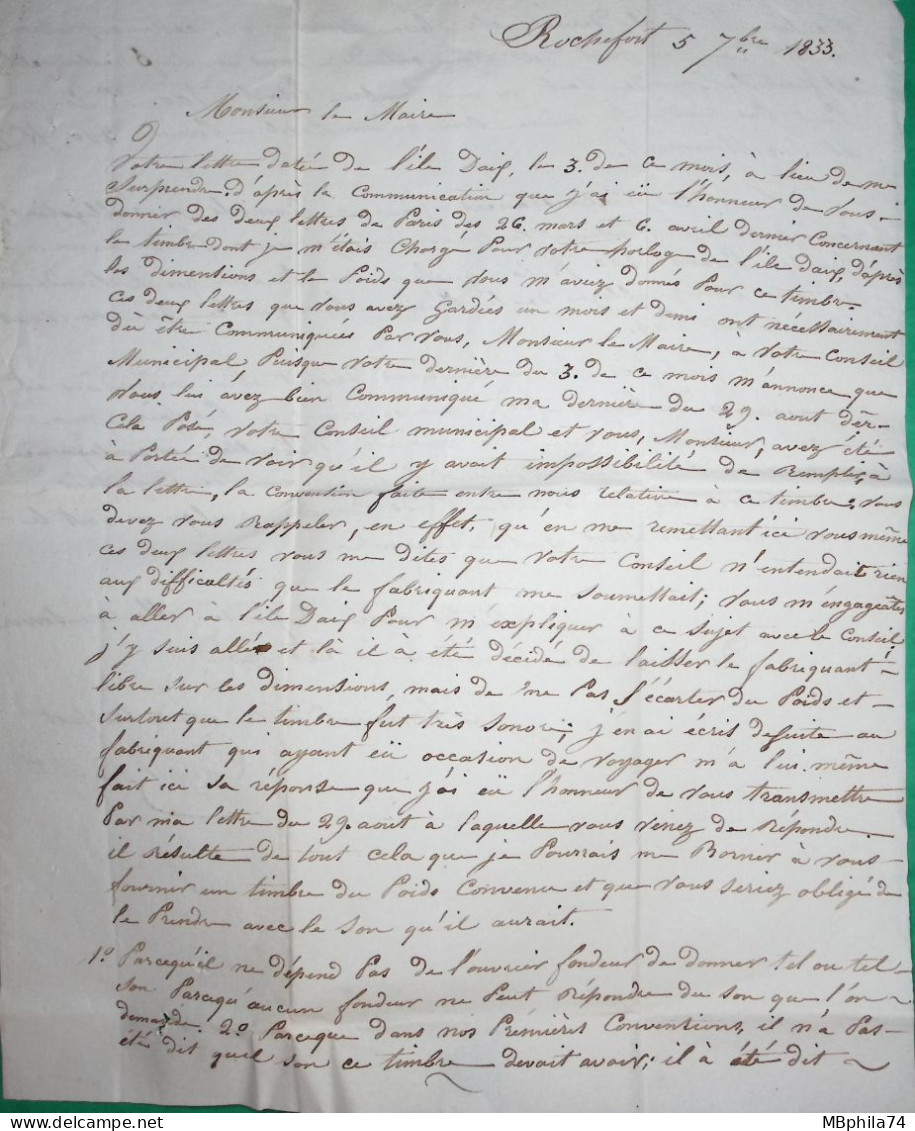 Rochefort 5 7bre 1833.
Monsieur le Maire
Votre lettre datée de l'île Daix, le 3. de ce mois, à lieu de me
Surprendre d'après la Communication que j'ai eü l'honneur de vous-
donner des deux lettres de Paris des 26. mars et 6. avril dernier Concernant
le timbre dont je m'étais Chargé Pour votre horloge de l'île daix, d'après
les dimentions et le Poids que vous m'aviez donnés Pour ce timbre
Ces deux lettres que vous avez Gardées un mois et demi ont nécessairement
dù être Communiquées Par vous, Monsieur le Maire, à votre Conseil
Municipal, Puisque votre dernière du 3. de ce mois m'annonce que
vous lui avez bien Communiqué ma dernière du 29. aout dēr-
Cela Posé, votre Conseil municipal et vous, Monsieur, avez été
à Portée de voir qu'il y avait impossibilité de Remplir, à
la lettre, la Convention faite entre nous relative à ce timbre; vous
devez vous Rappeler, en effet, qu'en me remettant ici vous même
ces deux lettres vous me dites que votre Conseil n'entendait rien
aux difficultés que le fabriquant me Soumettait; vous m'engageâtes
à aller à l'île Daix Pour m'expliquer à ce Sujet avec le Conseil
j'y suis allé et là il à été décidé de laisser le fabriquant-
libre sur les dimentions, mais de ne Pas S'écarter du Poids et-
Surtout que le timbre fut très Sonore; j'en ai écris desuite au
fabriquant qui ayant eü occasion de voyager m'a lui même
fait ici sa réponse que j'ai eü l'honneur de vous transmettre
Par ma lettre du 29. aout à laquelle vous venez de Répondre.
il Résulte de tout cela que je Pourrais me Borner à vous-
fournir un timbre du Poids Convenu et que vous seriez obligé de
le Prendre avec le Son qu'il aurait.
1º Parcequ'il ne dépend Pas de l'ouvrier fondeur de donner tel ou tel-
son Parcequ'aucun fondeur ne Peut Répondre du son que l'on
demande. 2º Parceque dans nos Premières Conventions, il n'a Pas-
été dit quel son ce timbre devait avoir; il à été dit
MBphila74